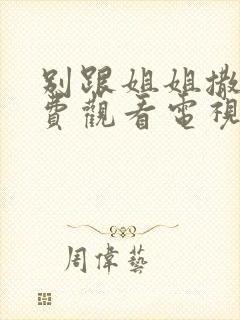 別跟姐姐撒
費觀看電視
周偉藝